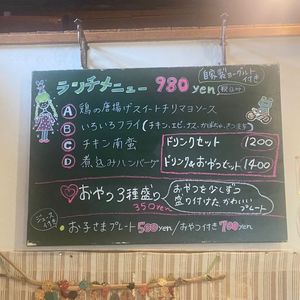 ランチメニュー 980yen(税込み)
自家製ヨーグルト付き
A 鶏の唐揚げスイートチリマヨソース
B いろいろフライ(チキン、エビ、ナス、かぼちゃ、さつま芋)
C チキン南蛮
D 煮込みハンバーグ
ドリンクセット 1200
ドリンク&おやつセット 1400
おやつ3種盛り 350yen
おやつを少しずつ
盛り付けた かわいい
プレート
ジュース付き
・お子さまプレート500yen/おやつ付き700yen